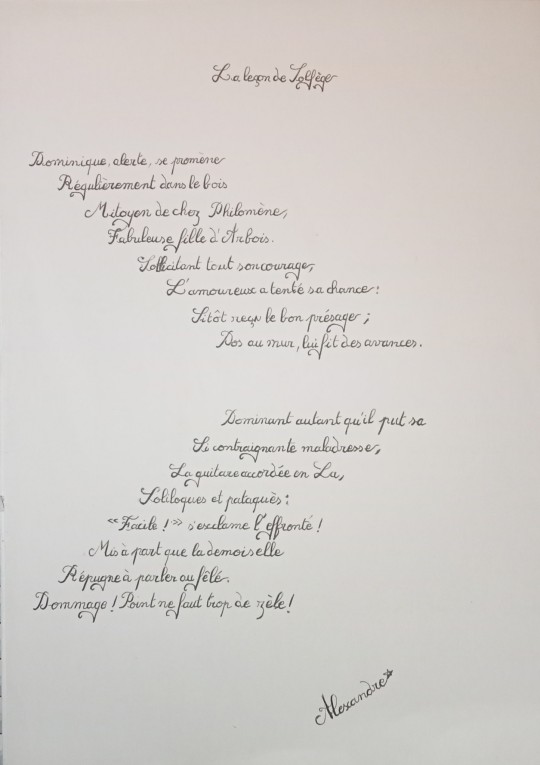 La leçon de Solfège
Dominique, alerte, se promène
Régulièrement dans le bois
Mitoyen de chez Philomène,
Fabuleuse fille d'Arbois.
Sollicitant tout son courage,
L'amoureux a tenté sa chance :
Sitôt reçu le bon présage ;
Dos au mur, lui fit des avances.
Dominant autant qu'il put sa
Si contraignante maladresse,
La guitare accordée en La,
Soliloques et pataquès :
“Facile !” s'exclame l'effronté !
Mis à part que la demoiselle
Répugne à parler au fêlé.
Dommage ! Point ne faut trop de zèle !
Alexandre